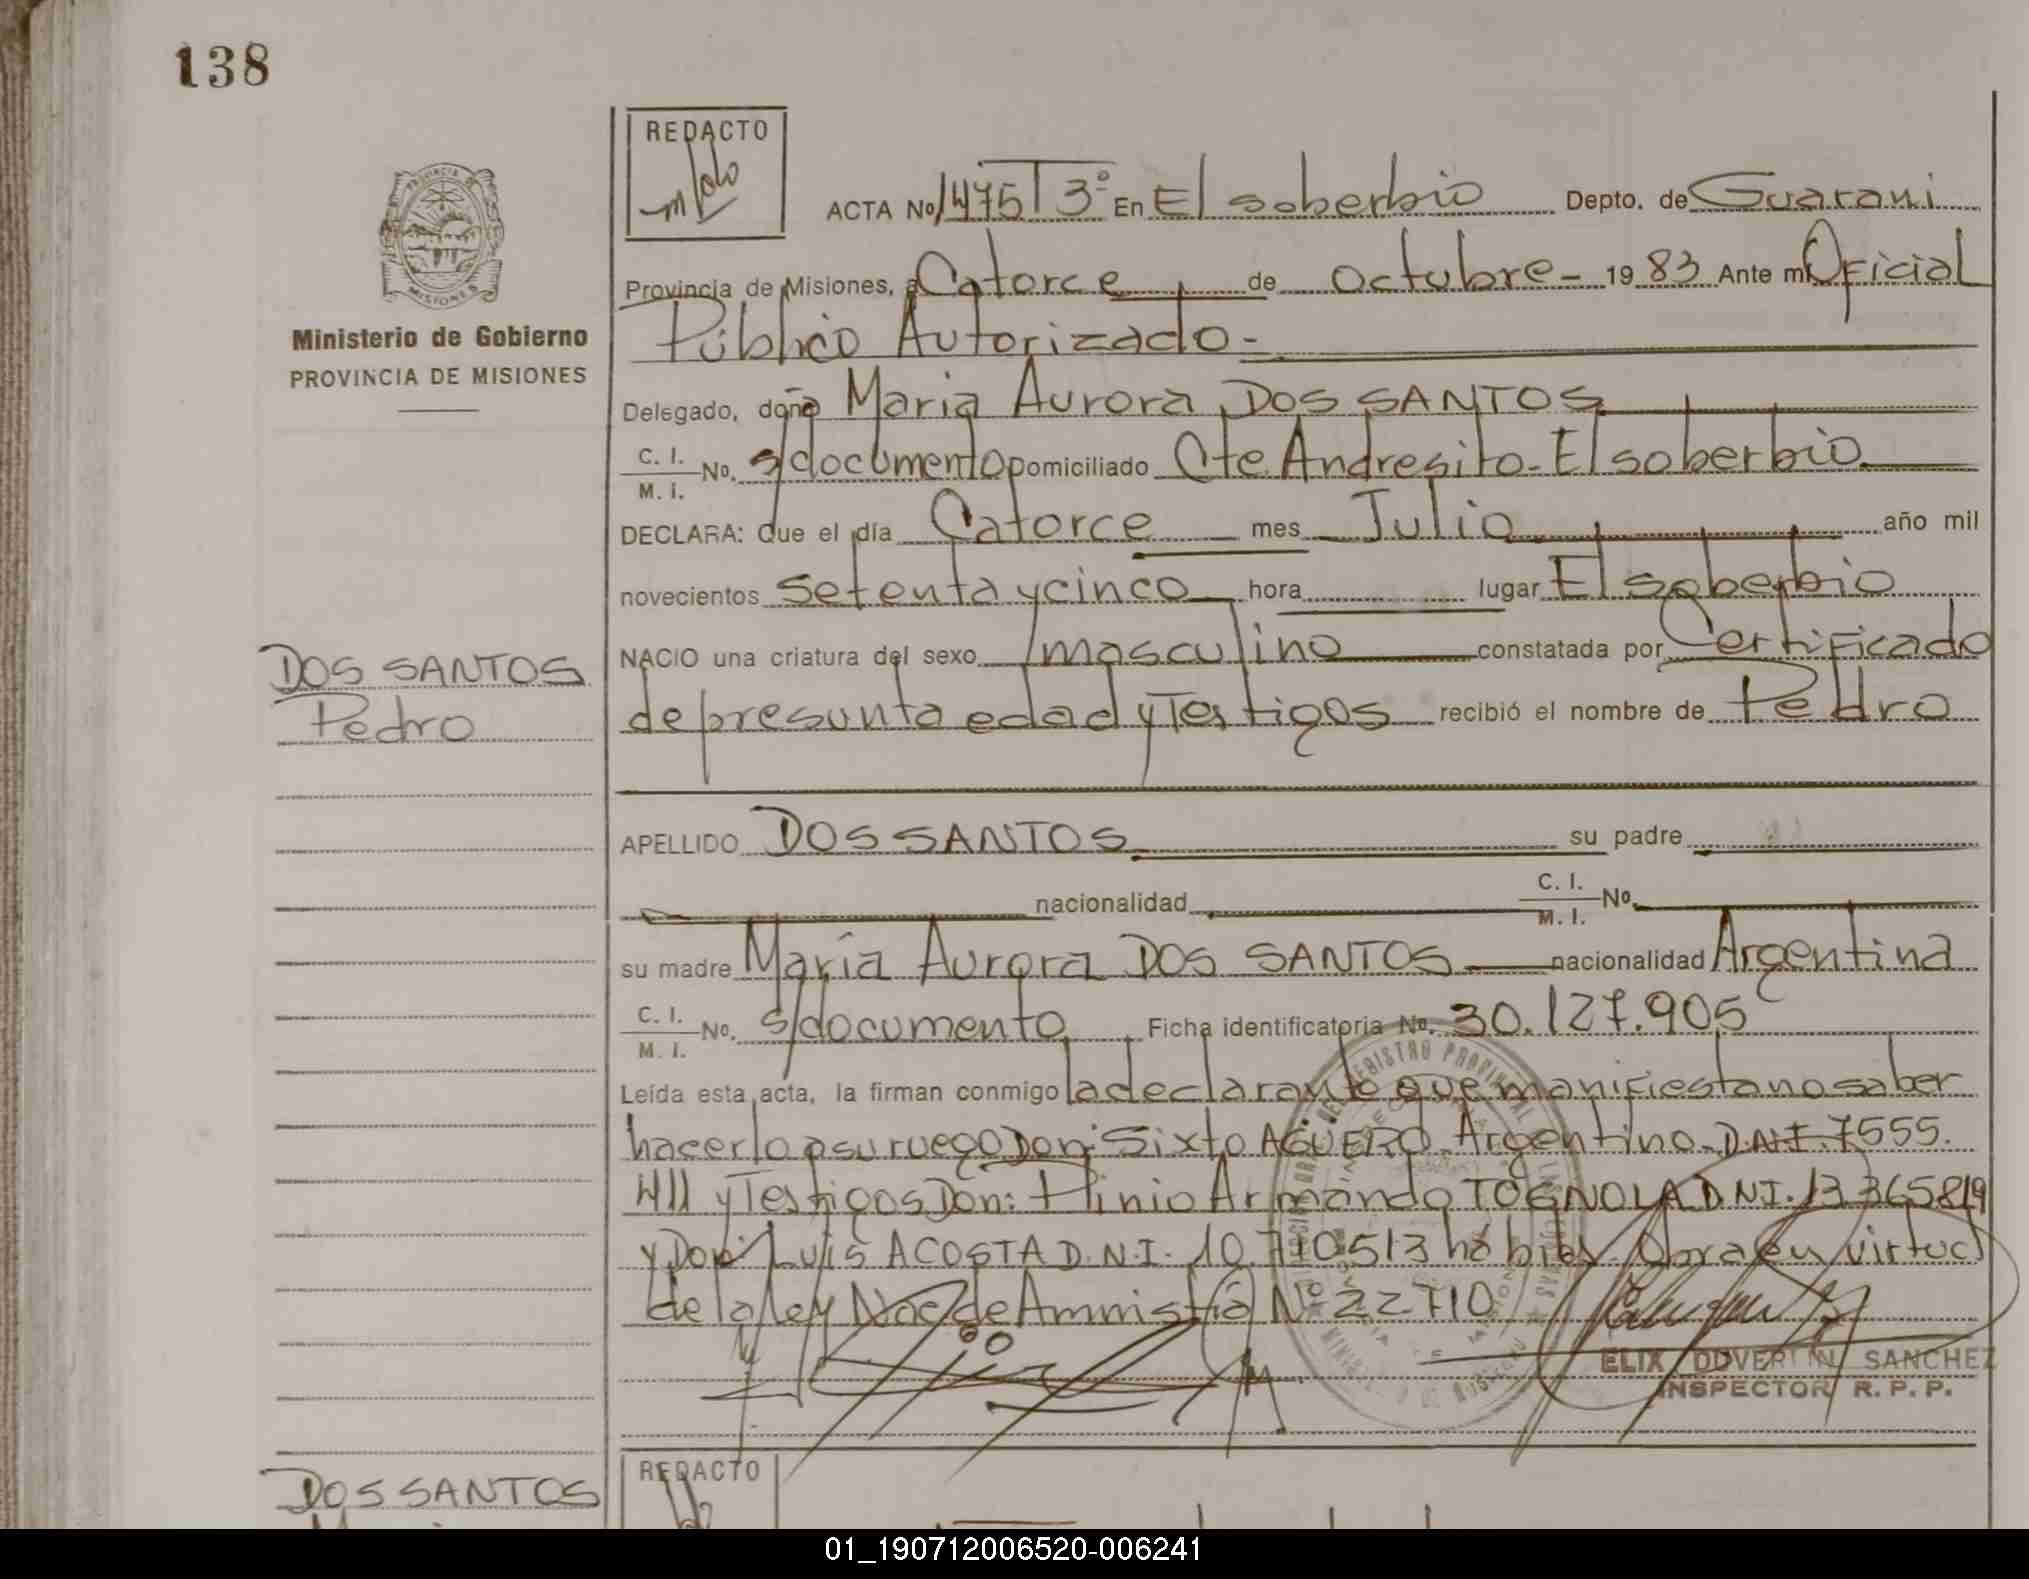 138
REDACTO
PROVINCIA DE
MISIONES
Ministerio de Gobierno
PROVINCIA DE MISIONES
ACTA No 1475 T 3º En El soberbio Depto. de Guarani
Provincia de Misiones, a Catorce de octubre - 1983 Ante mi Oficial
Público Autorizado -
Delegado, doña Maria Aurora DOS SANTOS
C. I. / M. I. No. s/documento Domiciliado Cte Andresito - El soberbio
DECLARA: Que el día Catorce mes Julio año mil
novecientos setenta y cinco hora lugar El soberbio
NACIO una criatura del sexo masculino constatada por Certificado
de presunta edad y Testigos recibió el nombre de Pedro
DOS SANTOS
Pedro
APELLIDO DOS SANTOS su padre
nacionalidad C. I. / M. I. No.
su madre María Aurora DOS SANTOS nacionalidad Argentina
C. I. / M. I. No. s/documento Ficha identificatoria No. 30.127.905
Leída esta acta, la firman conmigo la declarante que manifiesta no saber
hacerlo a su ruego Don: Sixto AGUERO - Argentino - D.N.I. 7555.
411 y Testigos Don: Plinio Armando TOGNOLA D.N.I. 13365819
y Don: Luis ACOSTA D.N.I. 10.710513 hábiles - Obra en virtud
de la ley Nac de Amnistía Nº 22710
ELIX DUVERLIN SANCHEZ
INSPECTOR R. P. P.
DOS SANTOS
REDACTO
01_190712006520-006241